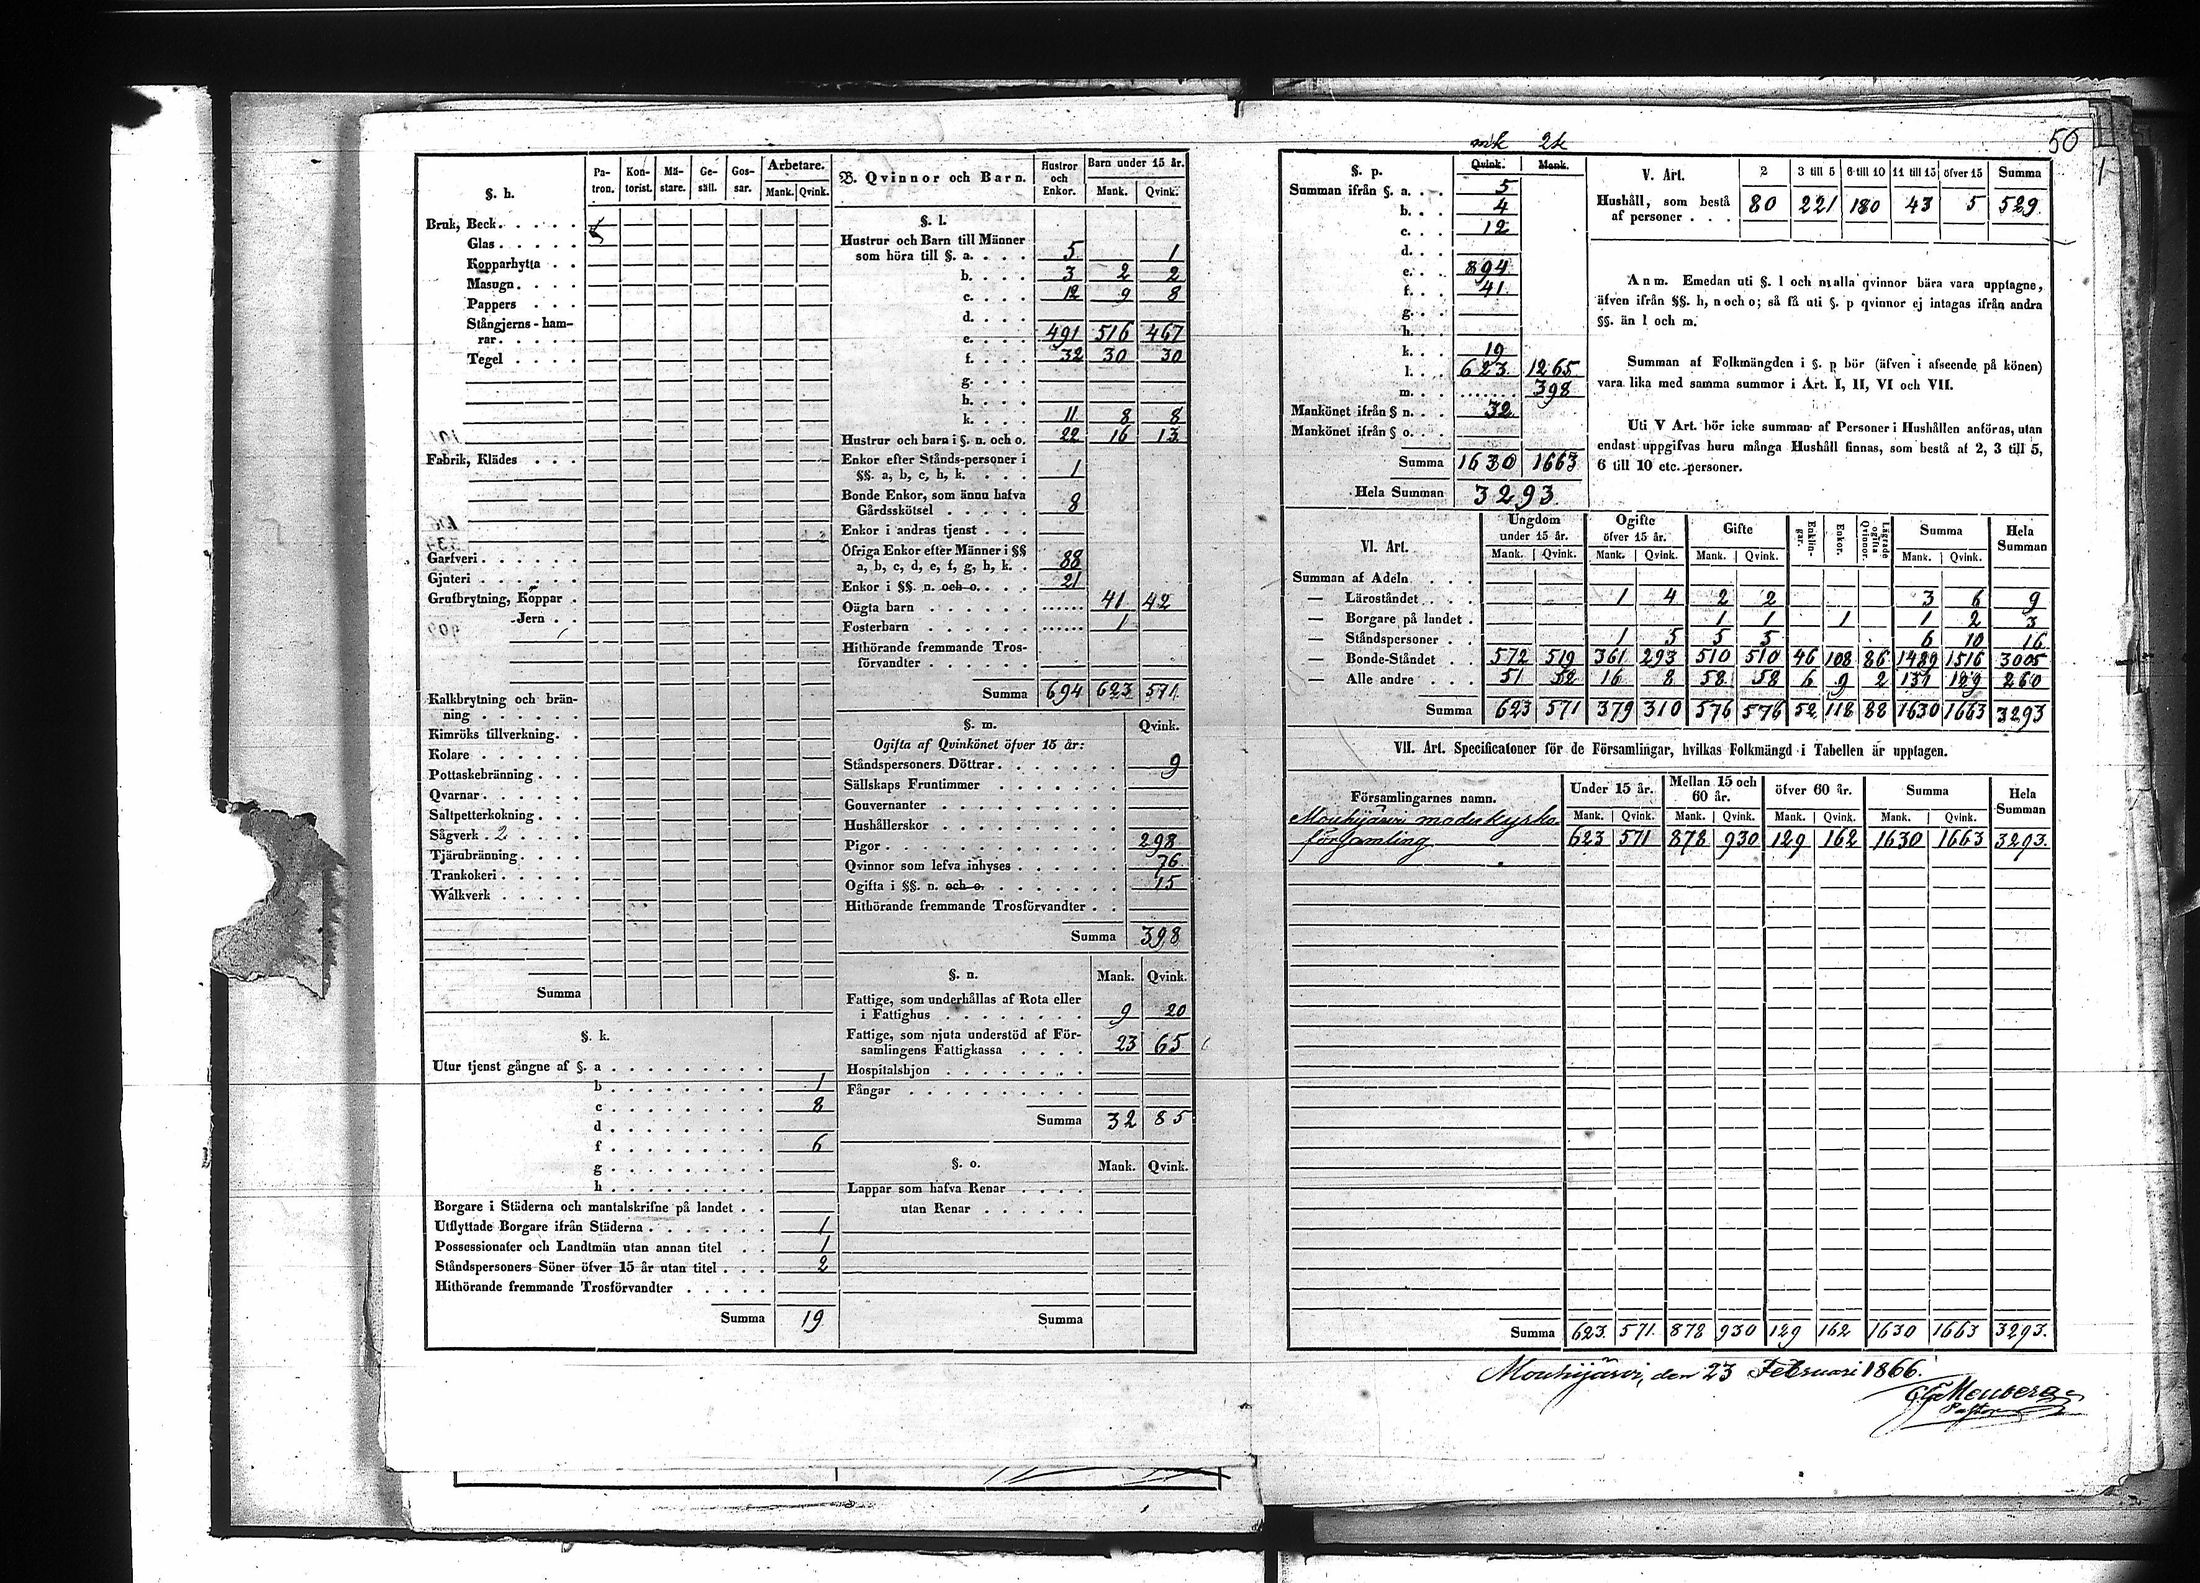 §. h.
Pa-tron. Kon-torist. Mä-stare. Ge-säll. Gos-sar. Arbetare. Mank. Qvink.
Bruk, Beck
Glas
Kopparhytta
Masugn
Pappers
Stångjerns-ham-
rar
Tegel
Fabrik, Klädes
Garfveri
Gjuteri
Grufbrytning, Koppar
Jern
Kalkbrytning och brän-
ning
Kimröks tillverkning
Kolare
Pottaskebränning
Qvarnar
Saltpetterkokning
Sågverk 2
Tjärubränning
Trankokeri
Walkverk
Summa
§. k.
Utur tjenst gångne af §. a
b 1
c 8
d
f 6
g
h
Borgare i Städerna och mantalskrifne på landet
Utflyttade Borgare ifrån Städerna 1
Possessionater och Landtmän utan annan titel 1
Ståndspersoners Söner öfver 15 år utan titel 2
Hithörande fremmande Trosförvandter
Summa 19
B. Qvinnor och Barn. Hustror och Enkor. Barn under 15 år. Mank. Qvink.
§. l.
Hustrur och Barn till Männer
som höra till §. a. 5 1
b. 3 2 2
c. 12 9 8
d.
e. 491 516 467
f. 32 30 30
g.
h.
k. 11 8 8
Hustrur och barn i §. n. och o. 22 16 13
Enkor efter Stånds-personer i
§§. a, b, c, h, k. 1
Bonde Enkor, som ännu hafva
Gårdsskötsel 8
Enkor i andras tjenst
Öfriga Enkor efter Männer i §§
a, b, c, d, e, f, g, h, k. 88
Enkor i §§. n. och o. 21
Oägta barn 41 42
Fosterbarn 1
Hithörande fremmande Tros-
förvandter
Summa 694 623 571
§. m. Qvink.
Ogifta af Qvinkönet öfver 15 år:
Ståndspersoners Döttrar 9
Sällskaps Fruntimmer
Gouvernanter
Hushållerskor
Pigor 298
Qvinnor som lefva inhyses 76
Ogifta i §§. n. och o. 15
Hithörande fremmande Trosförvandter
Summa 398
§. n. Mank. Qvink.
Fattige, som underhållas af Rota eller
i Fattighus 9 20
Fattige, som njuta understöd af För-
samlingens Fattigkassa 23 65
Hospitalshjon
Fångar
Summa 32 85
§. o. Mank. Qvink.
Lappar som hafva Renar
utan Renar
Summa
50
§. p. Qvink. Mank.
Summan ifrån §. a. 5
b. 4
c. 12
d.
e. 894
f. 41
g.
h.
k. 19
l. 623 1265
m. 398
Mankönet ifrån § n. 32
Mankönet ifrån § o.
Summa 1630 1663
Hela Summan 3293
V. Art. 2 3 till 5 6 till 10 11 till 15 öfver 15 Summa
Hushåll, som bestå
af personer 80 221 180 43 5 529
Anm. Emedan uti §. l och m alla qvinnor böra vara upptagne,
äfven ifrån §§. h, n och o; så få uti §. p qvinnor ej intagas ifrån andra
§§. än l och m.
Summan af Folkmängden i §. p bör (äfven i afseende på könen)
vara lika med samma summor i Art. I, II, VI och VII.
Uti V Art. bör icke summan af Personer i Hushållen anföras, utan
endast uppgifvas huru många Hushåll finnas, som bestå af 2, 3 till 5,
6 till 10 etc. personer.
VI. Art. Ungdom under 15 år. Ogifte öfver 15 år. Gifte Enklin-gar. Enkor. Lägrade ogifta Qvinnor. Summa Hela Summan
Mank. Qvink. Mank. Qvink. Mank. Qvink. Mank. Qvink.
Summan af Adeln
— Läroståndet 1 4 2 2 3 6 9
— Borgare på landet 1 1 1 1 2 3
— Ståndspersoner 1 5 5 5 6 10 16
— Bonde-Ståndet 572 519 361 293 510 510 46 108 86 1489 1516 3005
— Alle andre 51 52 16 8 58 58 6 9 2 131 129 260
Summa 623 571 379 310 576 576 52 118 88 1630 1663 3293
VII. Art. Specificatoner för de Församlingar, hvilkas Folkmängd i Tabellen är upptagen.
Församlingarnes namn. Under 15 år. Mellan 15 och 60 år. öfver 60 år. Summa Hela Summan
Mank. Qvink. Mank. Qvink. Mank. Qvink. Mank. Qvink.
Mouhijärvi moderkyrko
församling 623 571 878 930 129 162 1630 1663 3293.
Summa 623. 571. 878 930 129 162 1630 1663 3293.
Mouhijärvi, den 23 Februari 1866.
Pastor